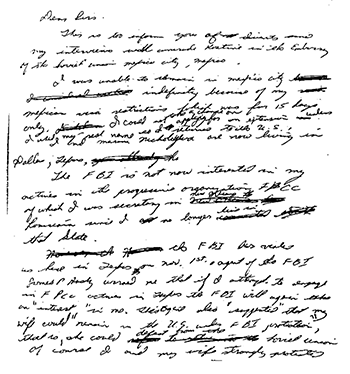 Dear Sirs.
This is to inform you of events since
my interview with comrade Kostine in the Embassy
of the Soviet Union mexico city, mexico.
I was unable to remain in mexico city
indefinitely because of my
mexican visa restrictions which was for 15 days
only. I could not apply for an extension unless
I used my real name so I returned to the U.S.
and Marina Nicholayeva are now living in
Dallas, Texas,
The FBI is not now interested in my
activities in the progressive organization FPCC
of which I was secretary in New Orleans
Louisiana since I no longer live in
that State.
the FBI has visited
us here in Texas on Nov. 1st. agent of the FBI
James P. Hasty warned me that if I attempt to engage
in FPCC activities in Texas the FBI will again take
an "interest" in me. This agent also "suggested" that my
wife could "remain in the U.S. under FBI protection,
that is, she could defect from the Soviet Union
Of course I and my wife strongly protested